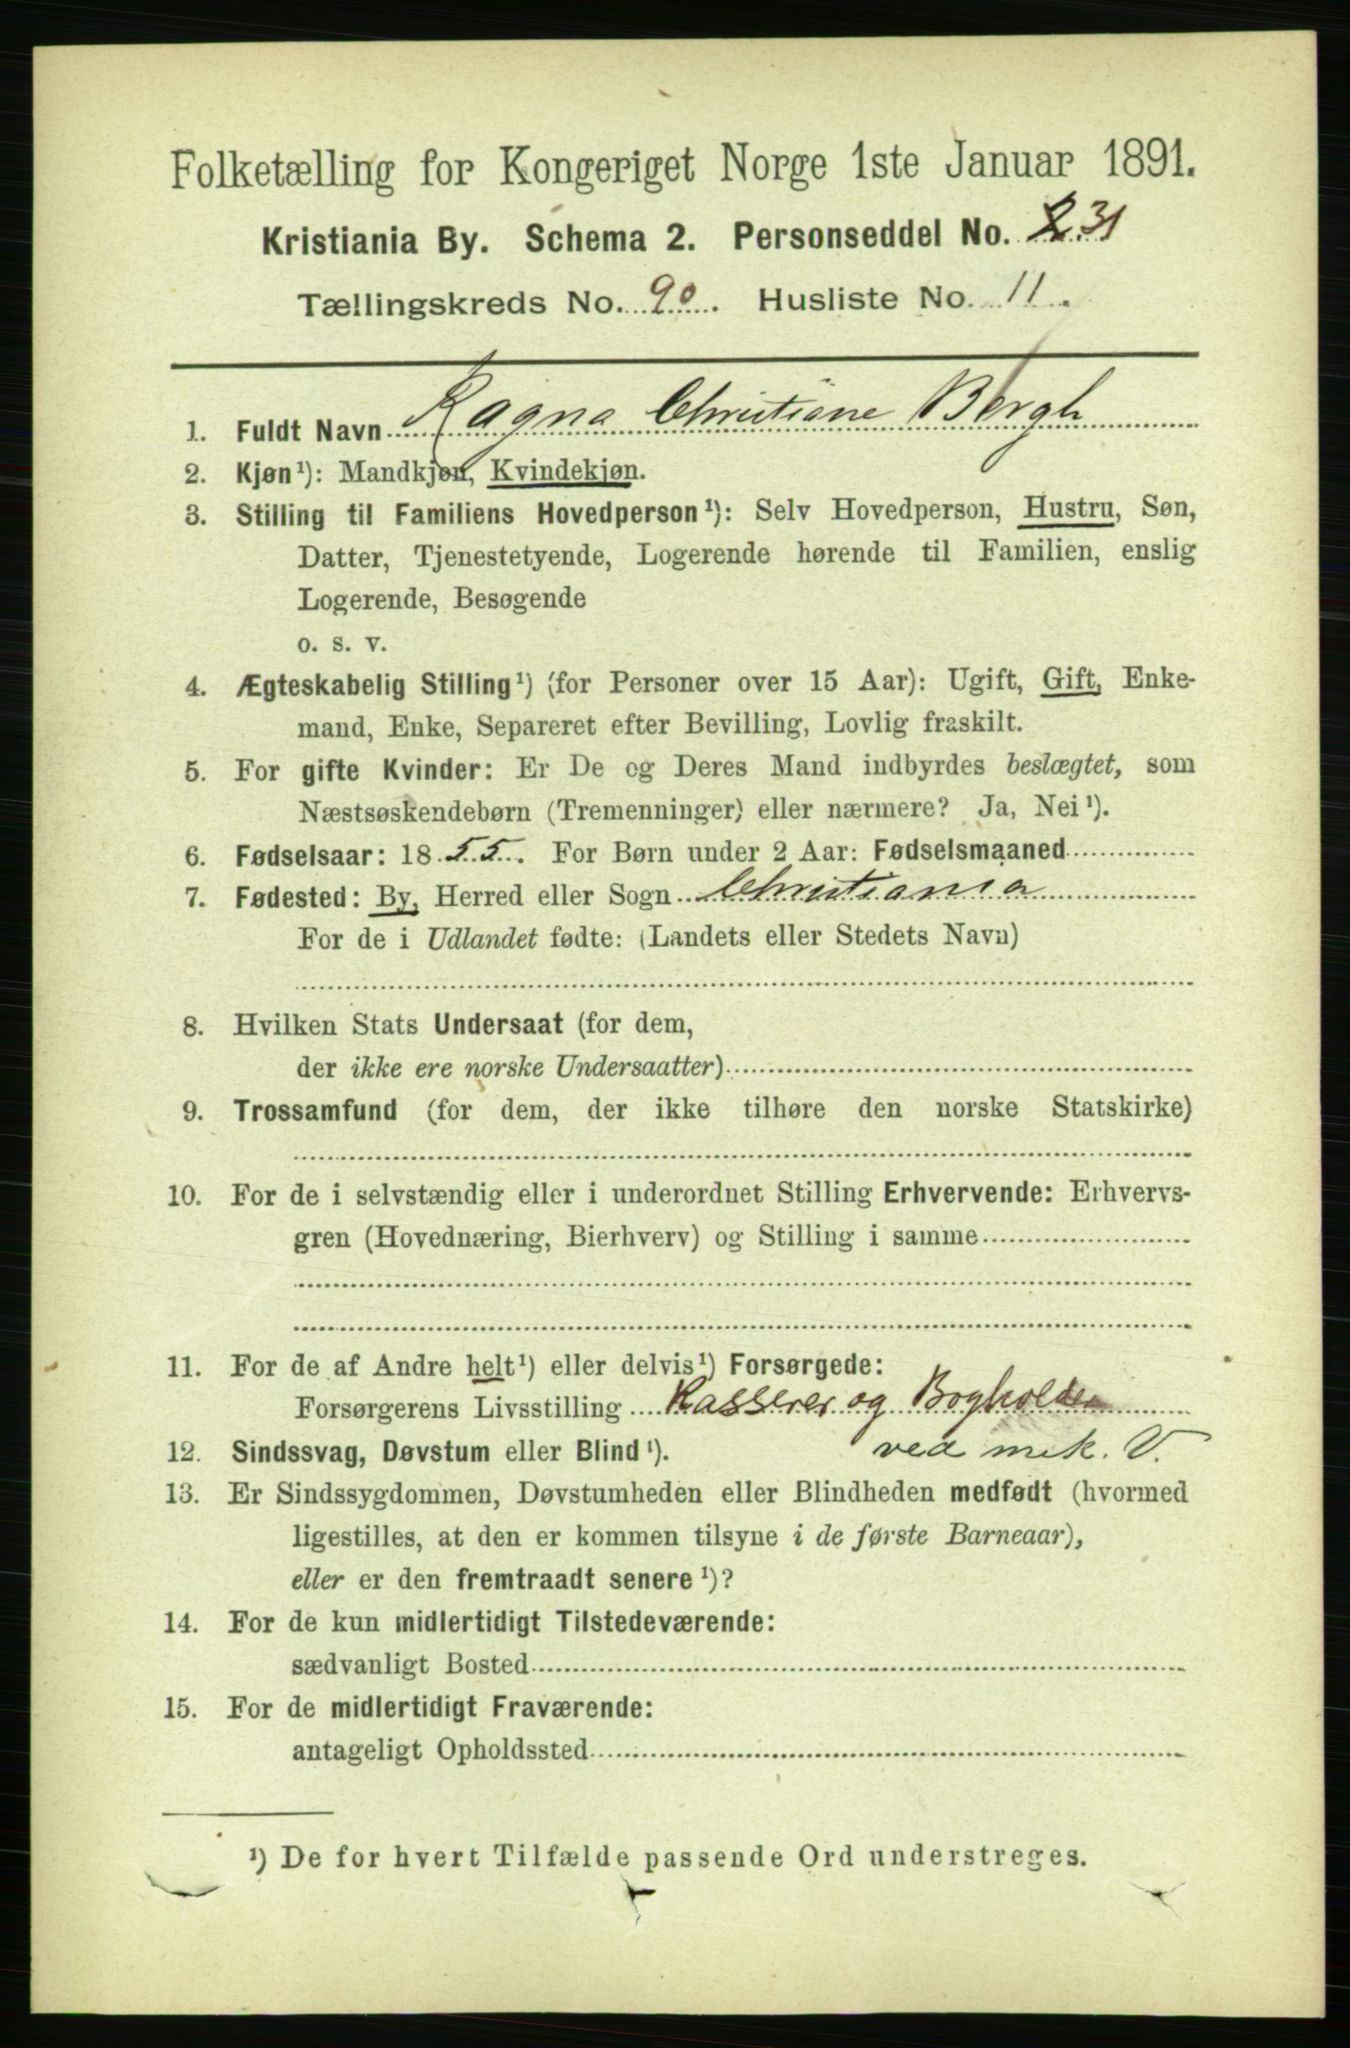 Folketælling for Kongeriget Norge 1ste Januar 1891.
Kristiania By. Schema 2. Personseddel No. 31
Tællingskreds No. 90. Husliste No. 11.
1. Fuldt Navn Ragna Christiane Bergh
2. Kjøn¹): Mandkjøn, Kvindekjøn.
3. Stilling til Familiens Hovedperson¹): Selv Hovedperson, Hustru, Søn,
Datter, Tjenestetyende, Logerende hørende til Familien, enslig
Logerende, Besøgende
o. s. v.
4. Ægteskabelig Stilling¹) (for Personer over 15 Aar): Ugift, Gift, Enke-
mand, Enke, Separeret efter Bevilling, Lovlig fraskilt.
5. For gifte Kvinder: Er De og Deres Mand indbyrdes beslægtet, som
Næstsøskendebørn (Tremenninger) eller nærmere? Ja, Nei¹).
6. Fødselsaar: 1855. For Børn under 2 Aar: Fødselsmaaned
7. Fødested: By, Herred eller Sogn Christiania
For de i Udlandet fødte: (Landets eller Stedets Navn)
8. Hvilken Stats Undersaat (for dem,
der ikke ere norske Undersaatter)
9. Trossamfund (for dem, der ikke tilhøre den norske Statskirke)
10. For de i selvstændig eller i underordnet Stilling Erhvervende: Erhvervs-
gren (Hovednæring, Bierhverv) og Stilling i samme
11. For de af Andre helt¹) eller delvis¹) Forsørgede:
Forsørgerens Livsstilling Kasserer og Bogholder
12. Sindssvag, Døvstum eller Blind¹). ved mek. V.
13. Er Sindssygdommen, Døvstumheden eller Blindheden medfødt (hvormed
ligestilles, at den er kommen tilsyne i de første Barneaar),
eller er den fremtraadt senere¹)?
14. For de kun midlertidigt Tilstedeværende:
sædvanligt Bosted
15. For de midlertidigt Fraværende:
antageligt Opholdssted
¹) De for hvert Tilfælde passende Ord understreges.